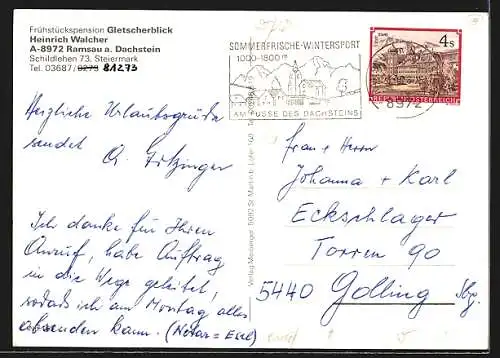 Frühstückspension Gletscherblick
Heinrich Walcher
A-8972 Ramsau a. Dachstein
Schildlehen 73, Steiermark
Tel. 03687/0273 81273
Herzliche Urlaubsgrüße
sendet
Ich danke für Ihren
Anruf, habe Auftrag
in die Wege geleitet,
sodaß ich am Montag alles
absenden kann. (Notar = Esel)
SOMMERFRISCHE-WINTERSPORT
1000-1800 m
AM FUSSE DES DACHSTEINS
4 S
REPUBLIK ÖSTERREICH
8972
Frau + Herrn
Johanna + Karl
Eckschlager
Torren 90
5440 Golling Sbg.